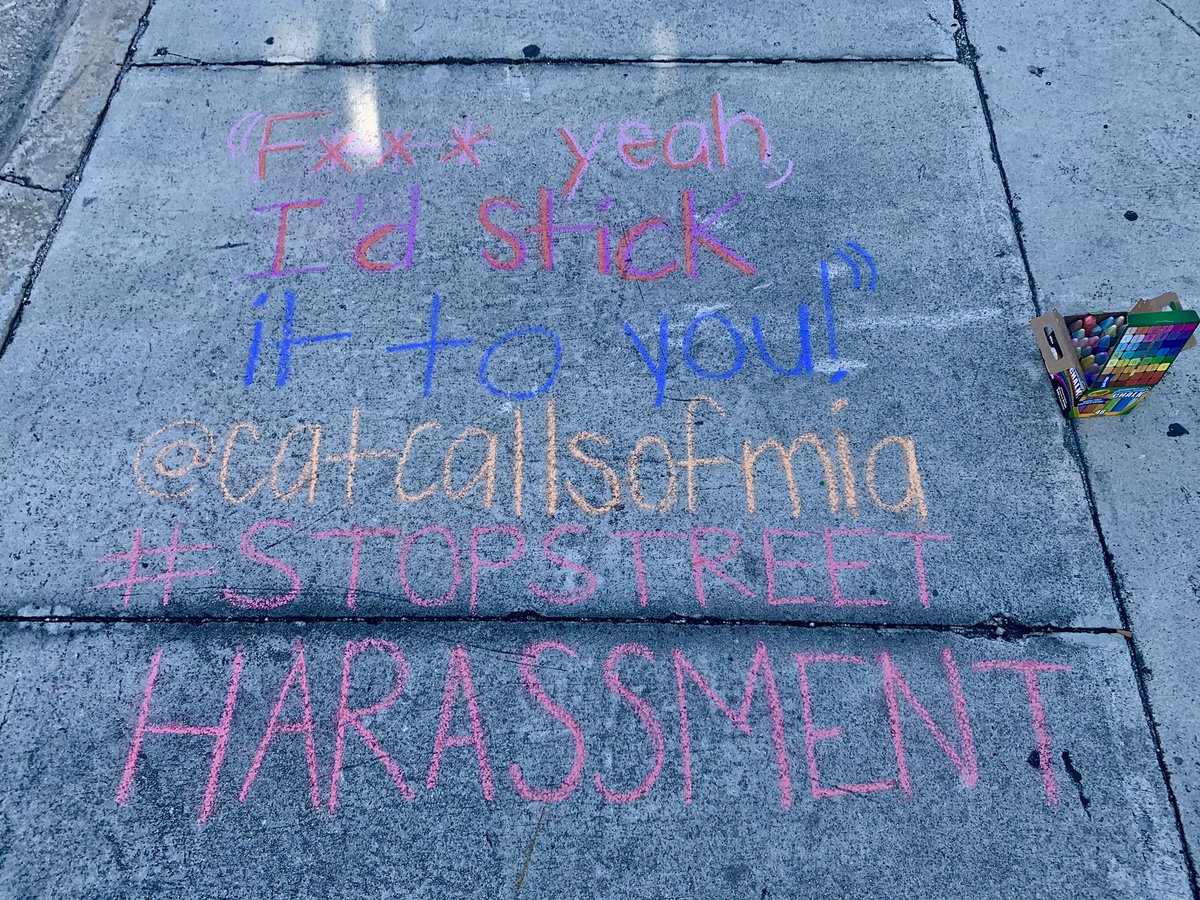 “F*** yeah,
I'd stick
it to you!”
@catcallsofmia
#STOPSTREET
HARASSMENT
CHALK
48